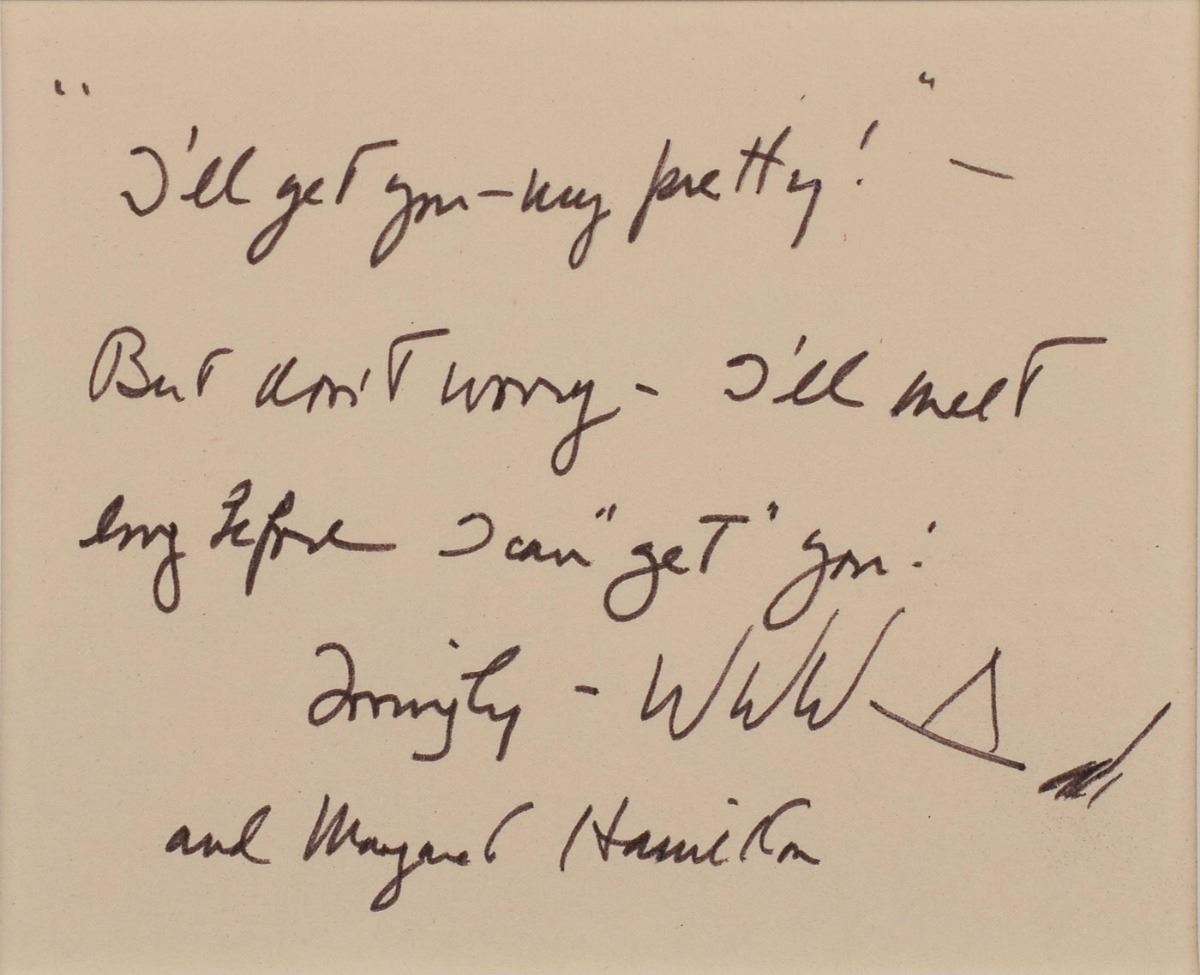 "I'll get you – my pretty!" –
But don't worry – I'll melt
long before I can "get" you!
Lovingly – WWW
and Margaret Hamilton